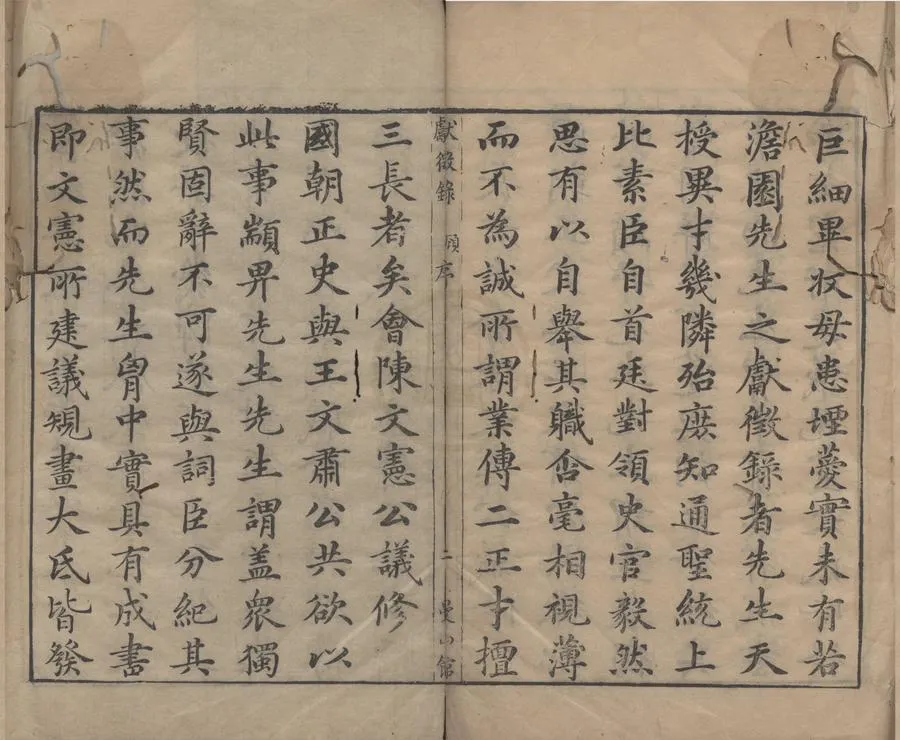 巨細畢收毋患堙薆實未有若
澹園先生之獻徵錄者先生天
授異才幾隣殆庶知通聖統上
比素臣自首廷對領史官毅然
思有以自舉其職否毫相視薄
而不為誠所謂業傳二正才擅
獻徵錄 顧序 二 曼山館
三長者矣會陳文憲公議修
國朝正史與王文肅公共欲以
此事顓畀先生先生謂盖眾獨
賢固辭不可遂與詞臣分紀其
事然而先生胷中實具有成書
即文憲所建議規畫大氐皆發